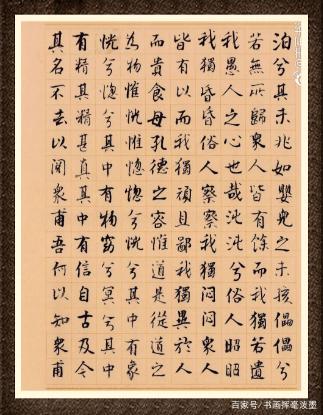 泊兮其未兆如嬰兒之未孩儡儡兮
若無所歸衆人皆有餘而我獨若遺
我愚人之心也哉沌沌兮俗人昭昭
我獨昏昏俗人察察我獨悶悶衆人
皆有以而我獨頑且鄙我獨異於人
而貴食母孔德之容惟道是從道之
為物惟恍惟惚惚兮恍兮其中有象
恍兮惚兮其中有物窈兮冥兮其中
有精其精甚真其中有信自古及今
其名不去以閱衆甫吾何以知衆甫
百家号/书画挥毫泼墨